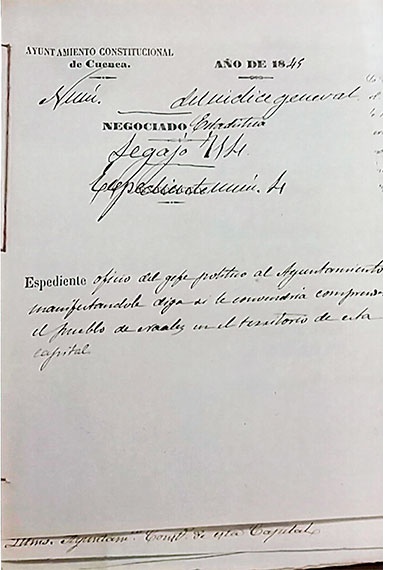 AYUNTAMIENTO CONSTITUCIONAL
de Cuenca.
AÑO DE 1845
Núm. del índice general
NEGOCIADO Estadística
Legajo
Expediente núm. 4
Espediente oficio del gefe político al Ayuntamiento
manifestandole diga si le convendria comprender
el pueblo de en el territorio de esta
capital
Ayuntam.to Const.l de esta Capital